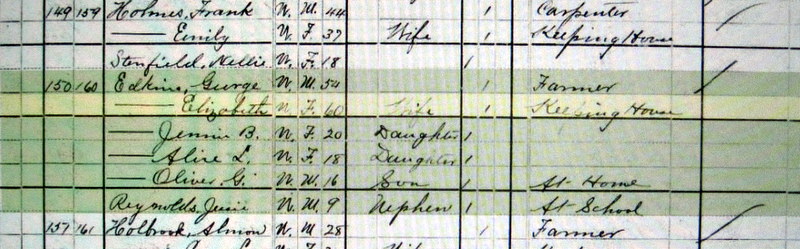 149 159 Holmes, Frank W. M. 44 1 Carpenter
— Emily W. F. 37 Wife 1 Keeping House
Stenfield, Nellie W. F. 18 1
150 160 Edkins, George W. M. 54 1 Farmer
— Elizabeth W F. 60 Wife 1 Keeping House
— Jennie B. W. F. 20 Daughter 1
— Alice L. W. F. 18 Daughter 1
— Oliver G. W. M. 16 Son 1 At Home
Reynolds, W. M 9 Nephew 1 At School
157 161 Holbrook, Almon W M 28 1 Farmer